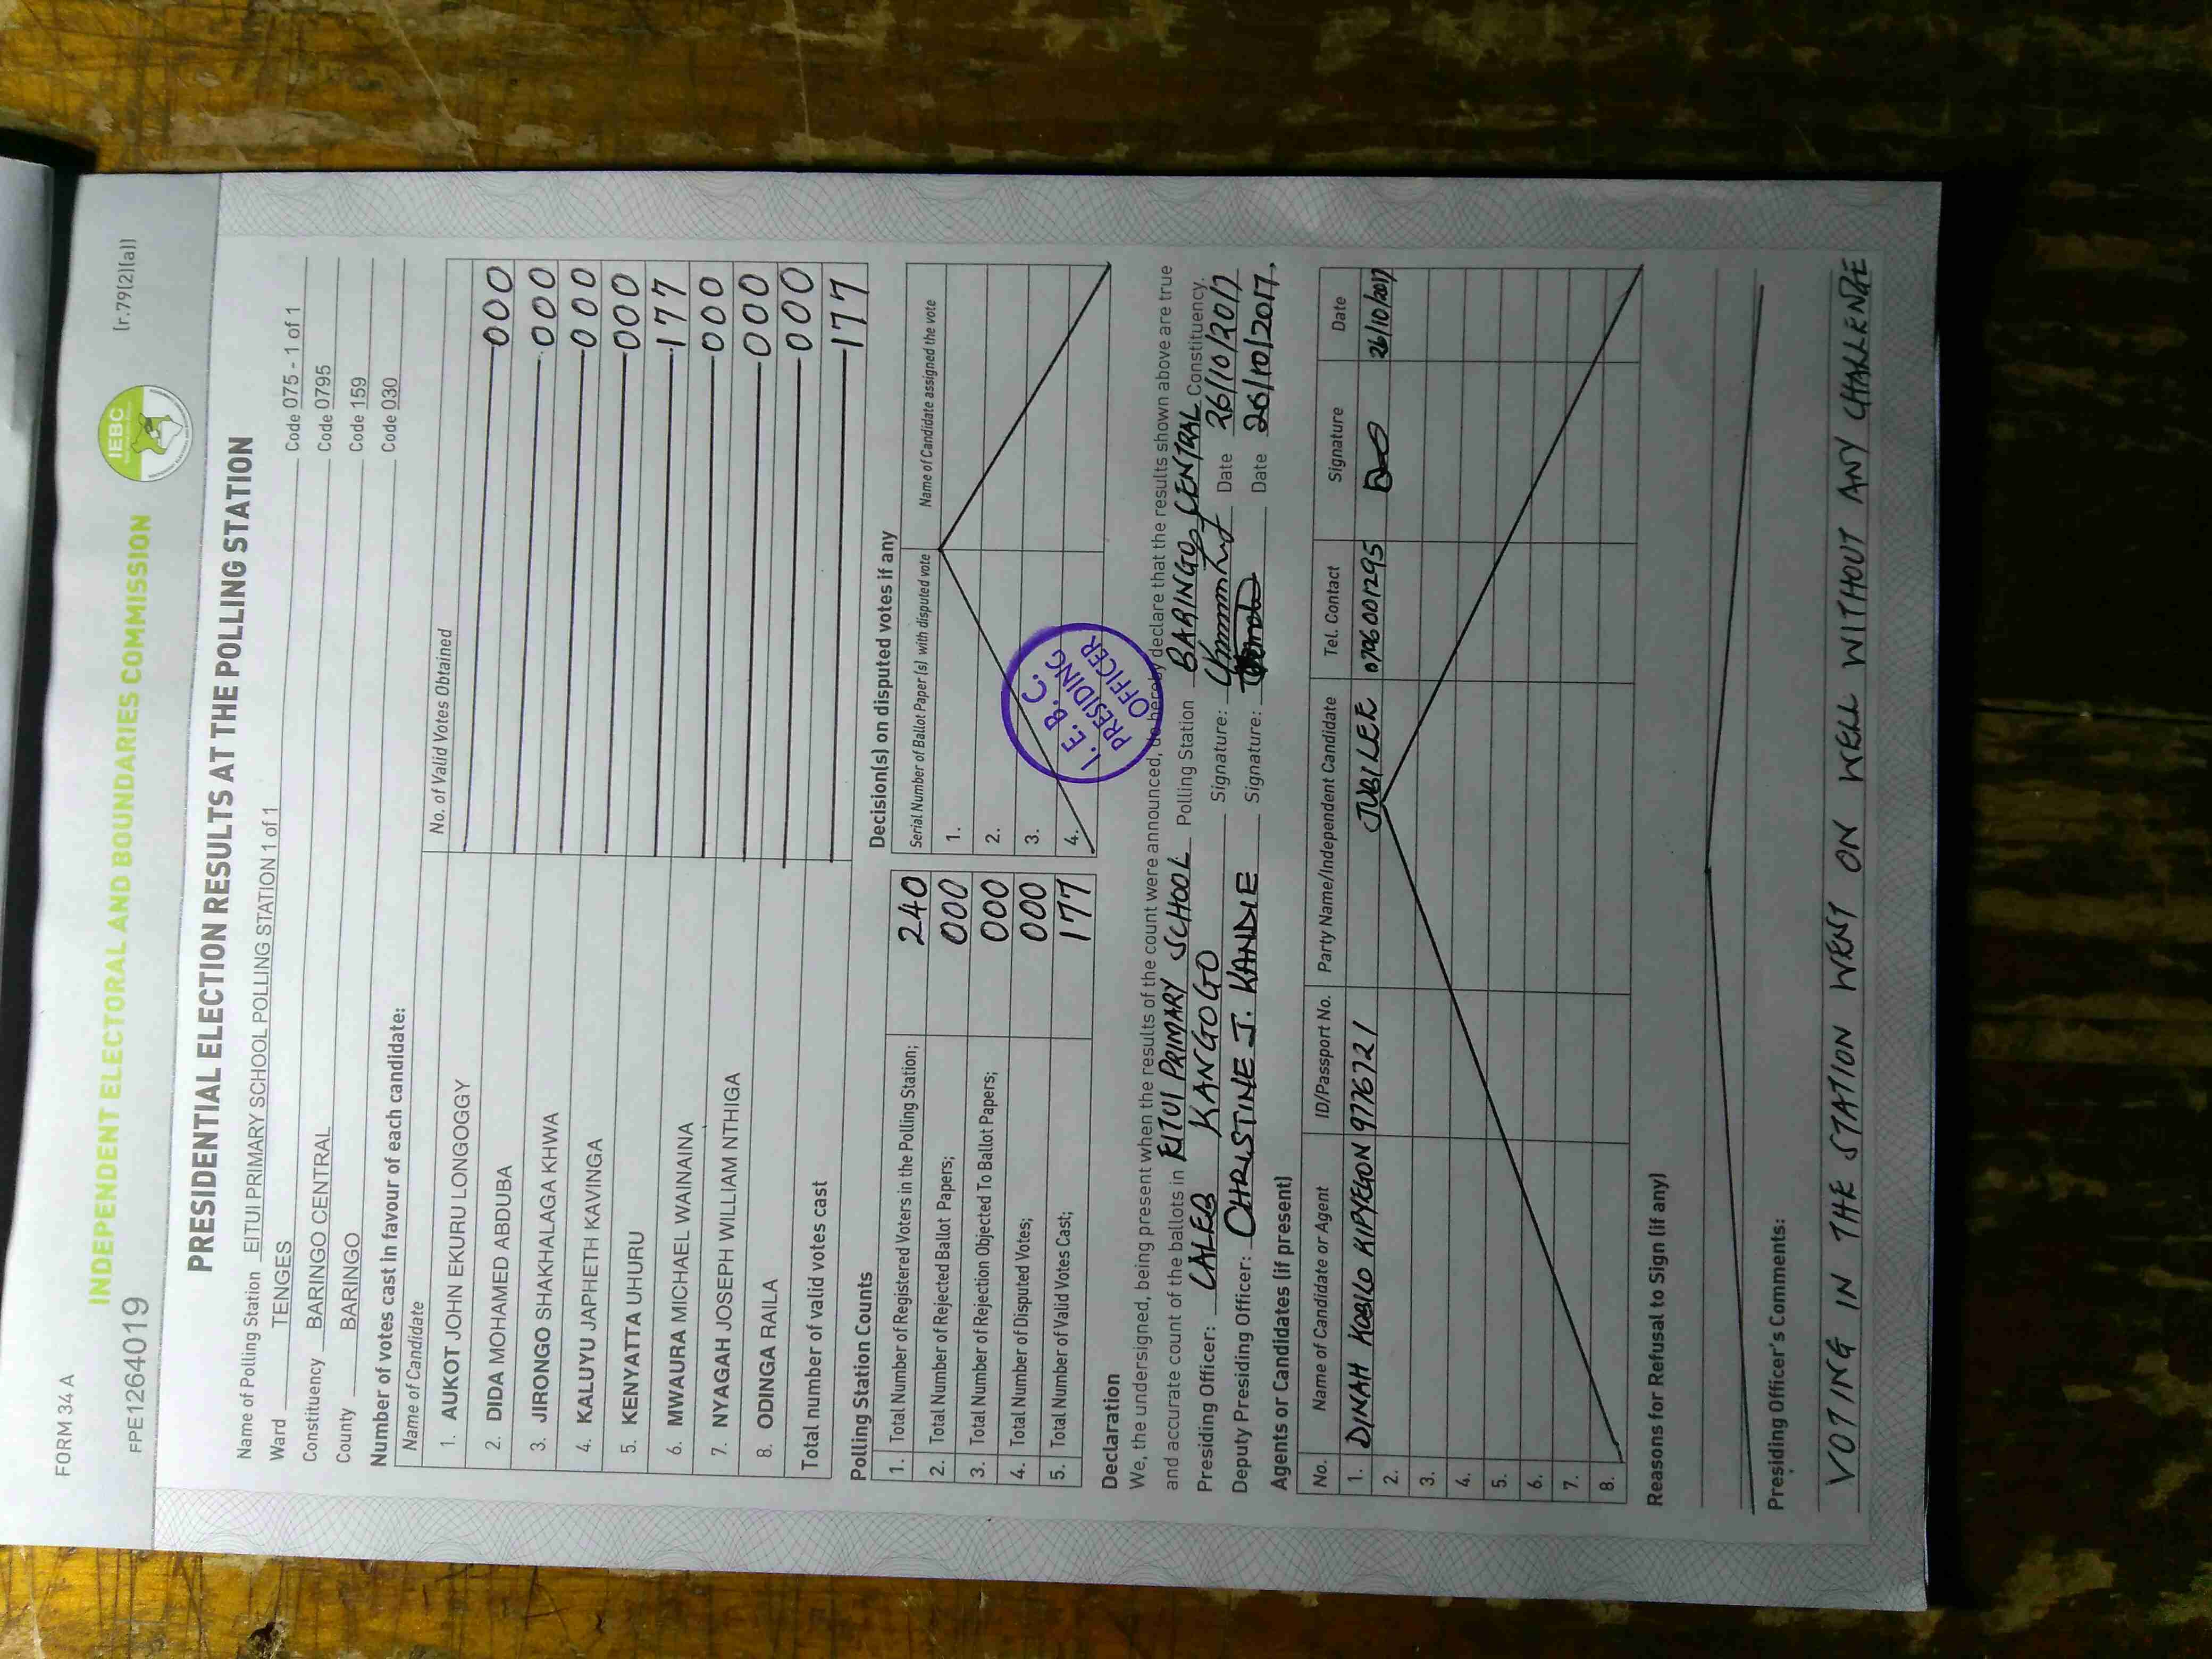 FORM 34 A
INDEPENDENT ELECTORAL AND BOUNDARIES COMMISSION
IEBC
[r.79(2)(a)]
FPE1264019
PRESIDENTIAL ELECTION RESULTS AT THE POLLING STATION
Name of Polling Station EITUI PRIMARY SCHOOL POLLING STATION 1 of 1 Code 075 - 1 of 1
Ward TENGES Code 0795
Constituency BARINGO CENTRAL Code 159
County BARINGO Code 030
Number of votes cast in favour of each candidate:
Name of Candidate No. of Valid Votes Obtained
1. AUKOT JOHN EKURU LONGOGGY 000
2. DIDA MOHAMED ABDUBA 000
3. JIRONGO SHAKHALAGA KHWA 000
4. KALUYU JAPHETH KAVINGA 000
5. KENYATTA UHURU 177
6. MWAURA MICHAEL WAINAINA 000
7. NYAGAH JOSEPH WILLIAM NTHIGA 000
8. ODINGA RAILA 000
Total number of valid votes cast 177
Polling Station Counts
1. Total Number of Registered Voters in the Polling Station; 240
2. Total Number of Rejected Ballot Papers; 000
3. Total Number of Rejection Objected To Ballot Papers; 000
4. Total Number of Disputed Votes; 000
5. Total Number of Valid Votes Cast; 177
Decision(s) on disputed votes if any
Serial Number of Ballot Paper (s) with disputed vote Name of Candidate assigned the vote
1.
2.
3.
4.
I.E.B.C.
PRESIDING
OFFICER
Declaration
We, the undersigned, being present when the results of the count were announced, do hereby declare that the results shown above are true
and accurate count of the ballots in EITUI PRIMARY SCHOOL Polling Station BARINGO CENTRAL Constituency.
Presiding Officer: CALEB KANGOGO Signature: Date 26/10/2017
Deputy Presiding Officer: CHRISTINE J. KANDIE Signature: Date 26/10/2017.
Agents or Candidates (if present)
No. Name of Candidate or Agent ID/Passport No. Party Name/Independent Candidate Tel. Contact Signature Date
1. DINAH KOBILO KIPYEGON 9776721 JUBILEE 0706001295 26/10/2017
2.
3.
4.
5.
6.
7.
8.
Reasons for Refusal to Sign (if any)
Presiding Officer's Comments:
VOTING IN THE STATION WENT ON WELL WITHOUT ANY CHALLENGE